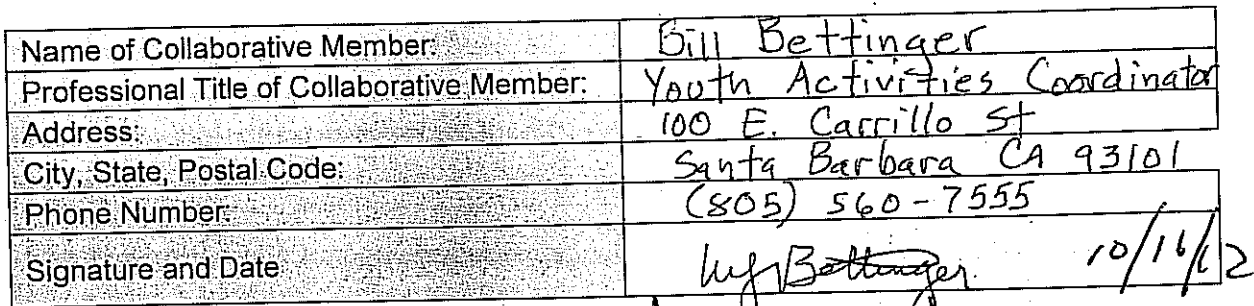 Name of Collaborative Member: Bill Bettinger
Professional Title of Collaborative Member: Youth Activities Coordinator
Address: 100 E. Carrillo St
City, State, Postal Code: Santa Barbara CA 93101
Phone Number: (805) 560-7555
Signature and Date Bettinger 10/16/12